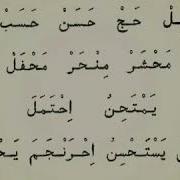 حَجْ حَسَنْ حَسَبْ
مَحْشَرْ مِنْحَرْ مَحْفَلْ
يَمْتَحِنُ اِحْتَمَلَ
يَسْتَحْسِنُ اِحْرَنْجَمَ